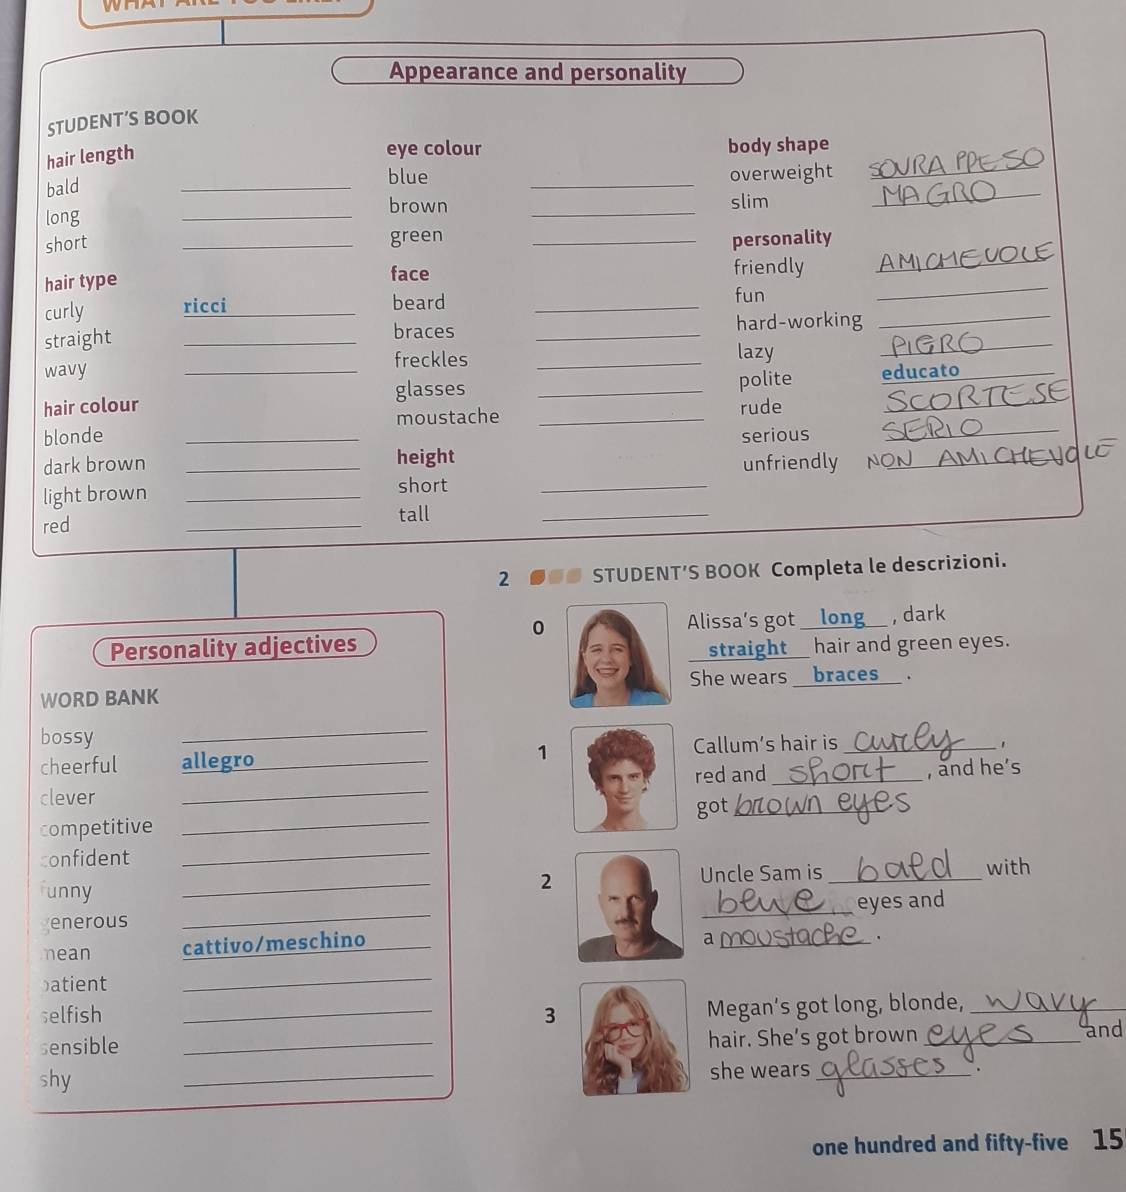 Appearance and personality
STUDENT'S BOOK
hair length
bald
long
short
hair type
curly ricci
straight
wavy
hair colour
blonde
dark brown
light brown
red
eye colour
blue
brown
green
face
beard
braces
freckles
glasses
moustache
height
short
tall
body shape
overweight SOVRAPPESO
slim MAGRO
personality
friendly AMICHEVOLE
fun
hard-working
lazy PIGRO
polite educato
rude SCORTESE
serious SERIO
unfriendly NON AMICHEVOLE
Personality adjectives
WORD BANK
bossy
cheerful allegro
clever
competitive
confident
funny
generous
mean cattivo/meschino
patient
selfish
sensible
shy
2 STUDENT'S BOOK Completa le descrizioni.
0 Alissa's got long, dark
straight hair and green eyes.
She wears braces.
1 Callum's hair is curly,
red and short, and he's
got brown eyes
2 Uncle Sam is bald with
blue eyes and
a moustache.
3 Megan's got long, blonde, wavy
hair. She's got brown eyes and
she wears glasses.
one hundred and fifty-five 15